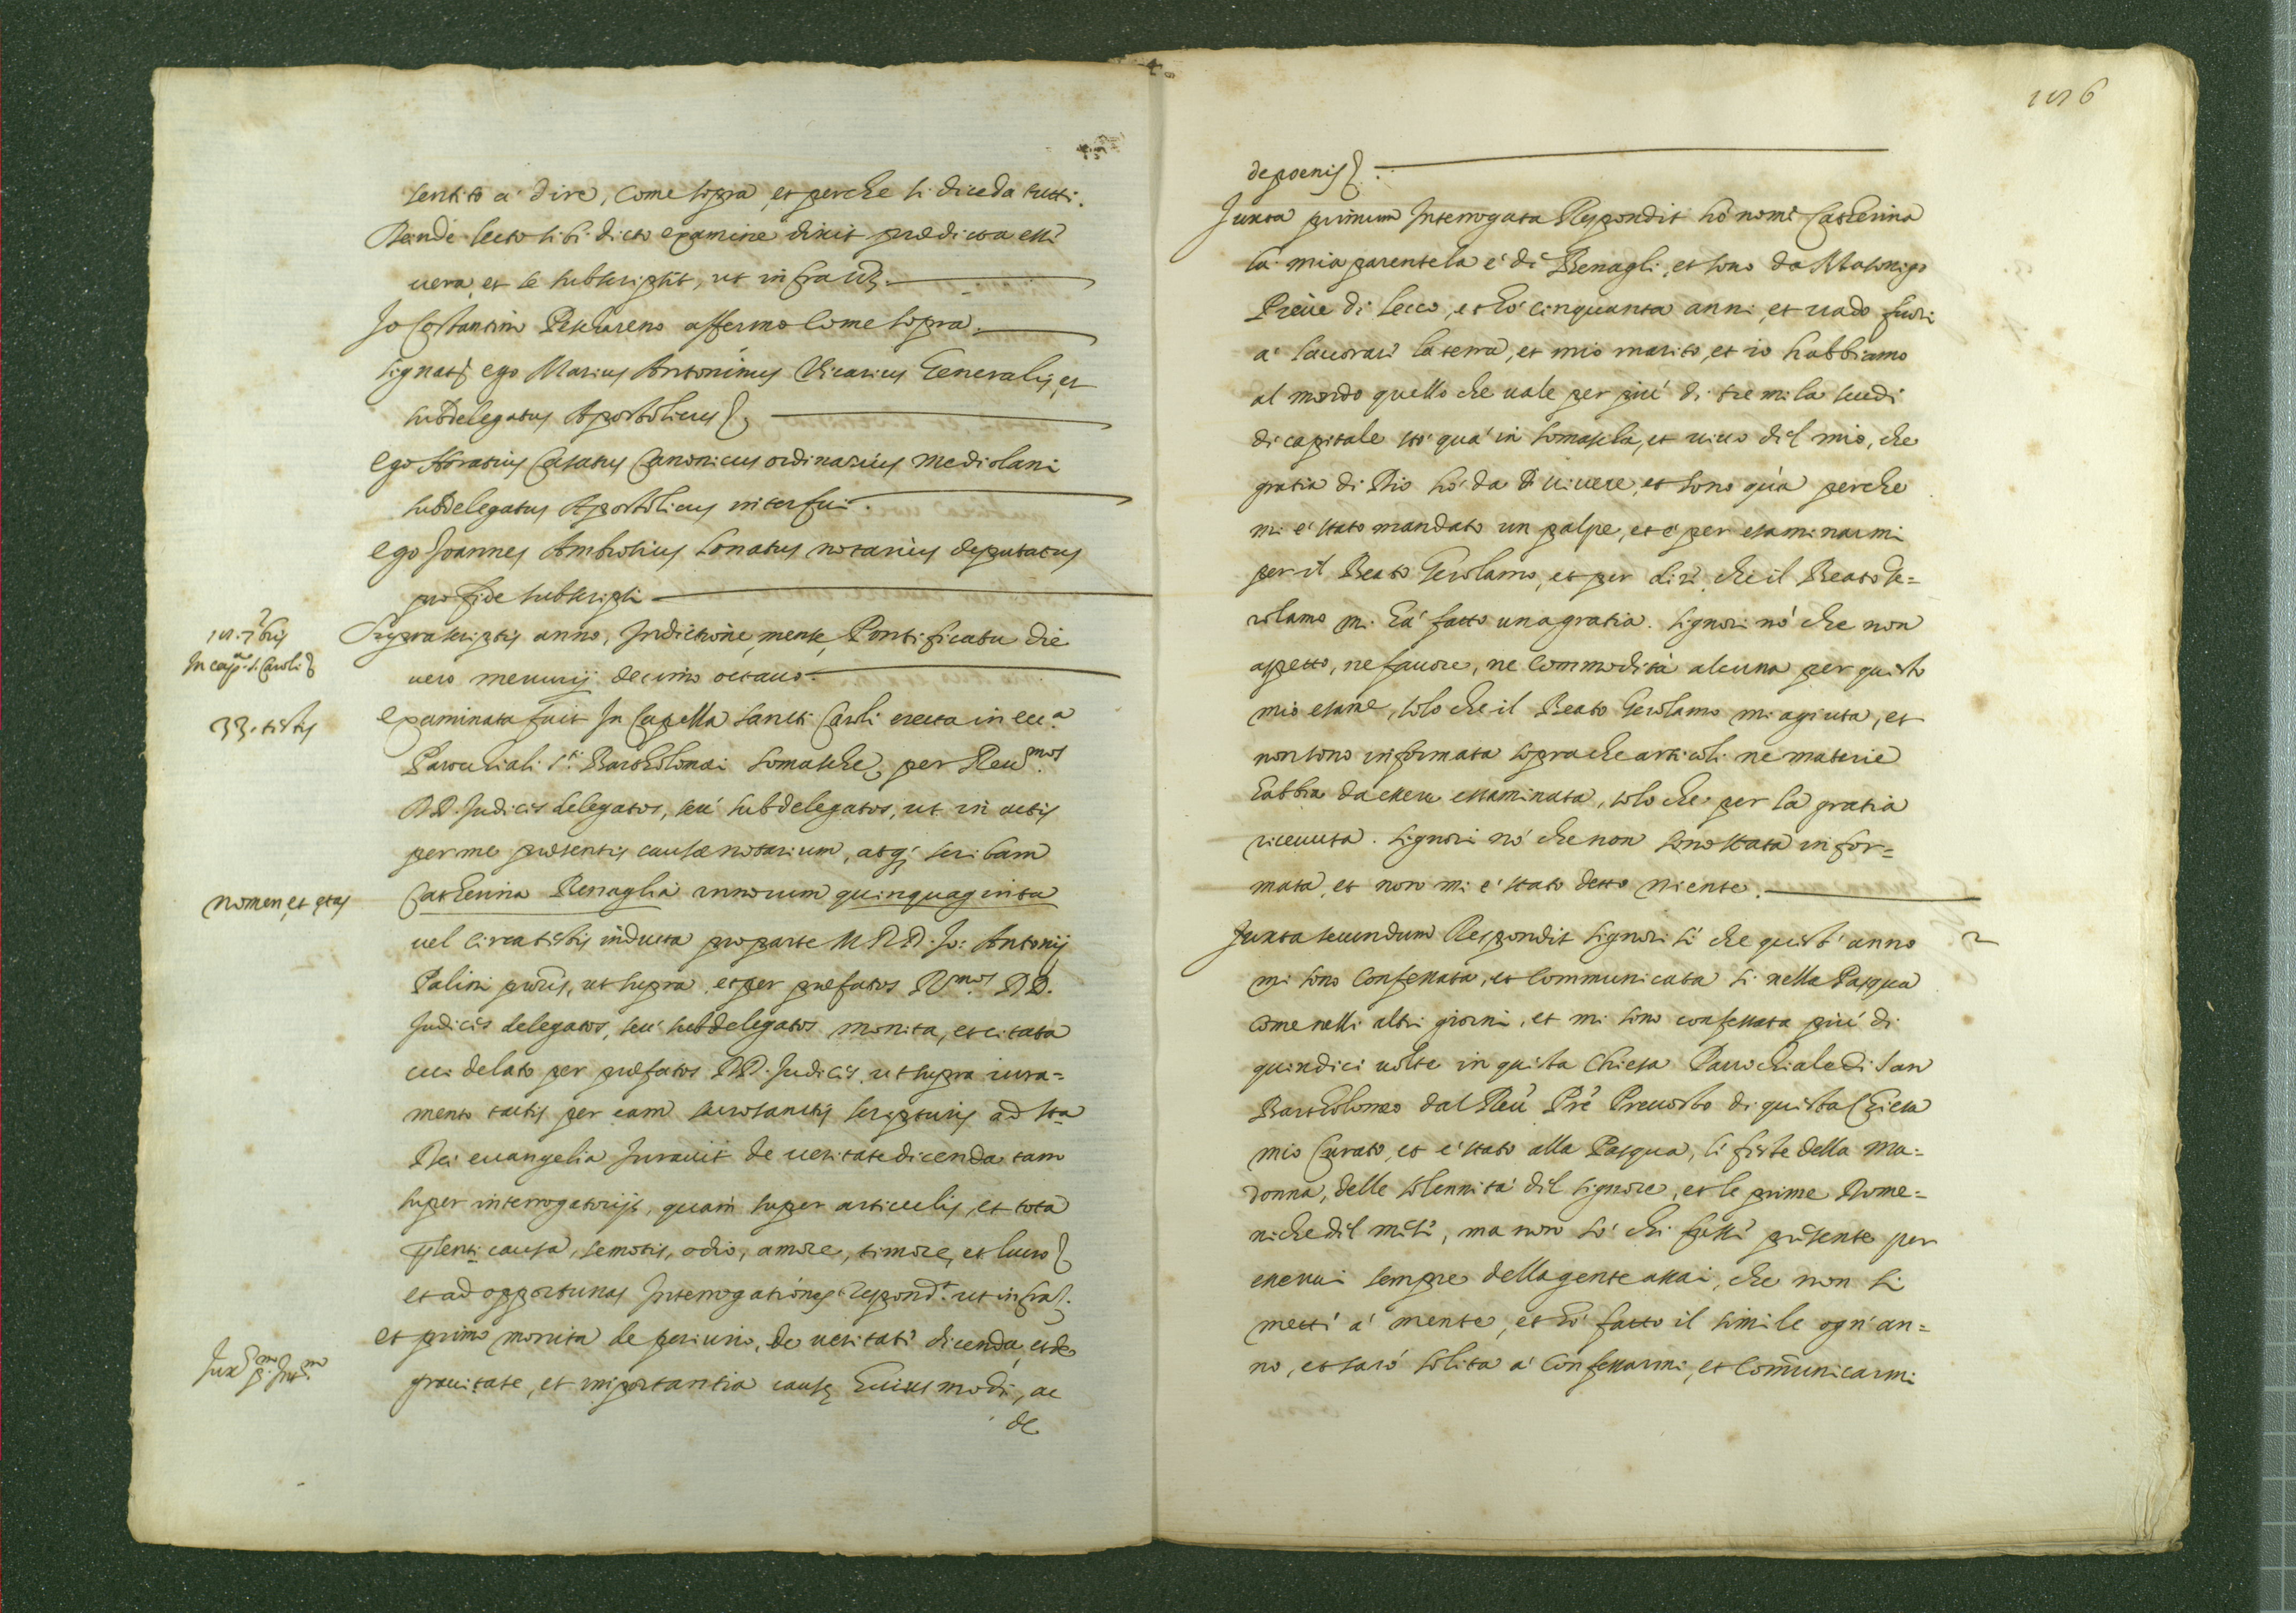 sentito a' dire, come sopra, et perche si dice da tutti.
Deinde lecto sibi dicto examine dixit prædicta esse
vera, et se subscripsit, ut infra
Io Costantino Pescareno affermo come sopra.
signat. ego Marius Antoninus Vicarius Generalis, et
subdelegatus Apostolicus
Ego Horatius Casatus Canonicus ordinarius Mediolani
subdelegatus Apostolicus interfui.
Ego Joannes Ambrosius Lonatus notarius deputatus
pro fide subscripsi
18. 7bris
In capp.a S. Caroli
Supra scriptis anno, Indictione, mense, Pontificatu die
vero mercurij decimo octavo.
33. testis
Examinata fuit In Capella Sancti Caroli erecta in ecc.a
Parochiali S.ti Bartholomæi Somaschæ, per Reu.mos
DD. Judices delegatos, seu subdelegatos, ut in actis
per me præsentis causæ notarium, atq; scribam
nomen, et ętas
Catherina Benaglia annorum quinquaginta
vel circa testis inducta pro parte M. R. D. Jo: Antonij
Palini proris, ut supra, et per præfatos R.mos DD.
Judices delegatos, seu subdelegatos monita, et citata
cui delato per præfatos DD. Judices, ut supra iura=
mento tactis per eam sacrosanctis scripturis ad sta
Dei evangelia Juravit de veritate dicenda tam
super interrogatorijs, quam super articulis, et tota
pñti causa, semotis, odio, amore, timore, et lucro
et ad opportunas Interrogationes respond.t ut infra.
Jux p.m Int.m
Et primo monita de periurio, de veritate dicenda, et de
gravitate, et importantia causę huiusmodi, ac
de
1156
de poenis
Juxta primum Interrogata Respondit hò nome Catherina
la mia parentela è di Benagli, et sono da
Pieve di Lecco, et hò cinquanta anni, et vado fuori
a' lavorare la terra, et mio marito, et io habbiamo
al mondo quello che vale per più di tre mila scudi
di capitale stò quà in Somascha, et vivo del mio, che
gratia di Dio hò da vivere, et sono quà perche
mi è stato mandato un polpe, et è per esaminarmi
per il Beato Gerolamo, et per dire che il Beato Ge=
rolamo mi hà fatto una gratia. Signori nò che non
aspetto, ne favore, ne commodità alcuna per questo
mio esame, solo che il Beato Gerolamo mi agiuta, et
non sono informata sopra che articoli ne materie
habbia da essere essaminata, solo che per la gratia
ricevuta. Signori nò che non sono stata infor=
mata, et non mi è stato detto niente.
Juxta secundum Respondit Signori sì che quest'anno
2
mi sono confessata, et communicata sì nella Pasqua
come nelli altri giorni, et mi sono confessata più di
quindici volte in questa Chiesa Parochiale di San
Bartholomeo dal Reu. Prè Prevosto di questa Chiesa
mio Curato, et è stato alla Pasqua, le feste della Ma=
donna, delle solennità del Signore, et le prime Dome=
niche del mese, ma non sò chi fosse presente per
esservi sempre della gente assai, che non si
mette a' mente, et hò fatto il simile ogn'an=
no, et sarò solita a' confessarmi, et comunicarmi